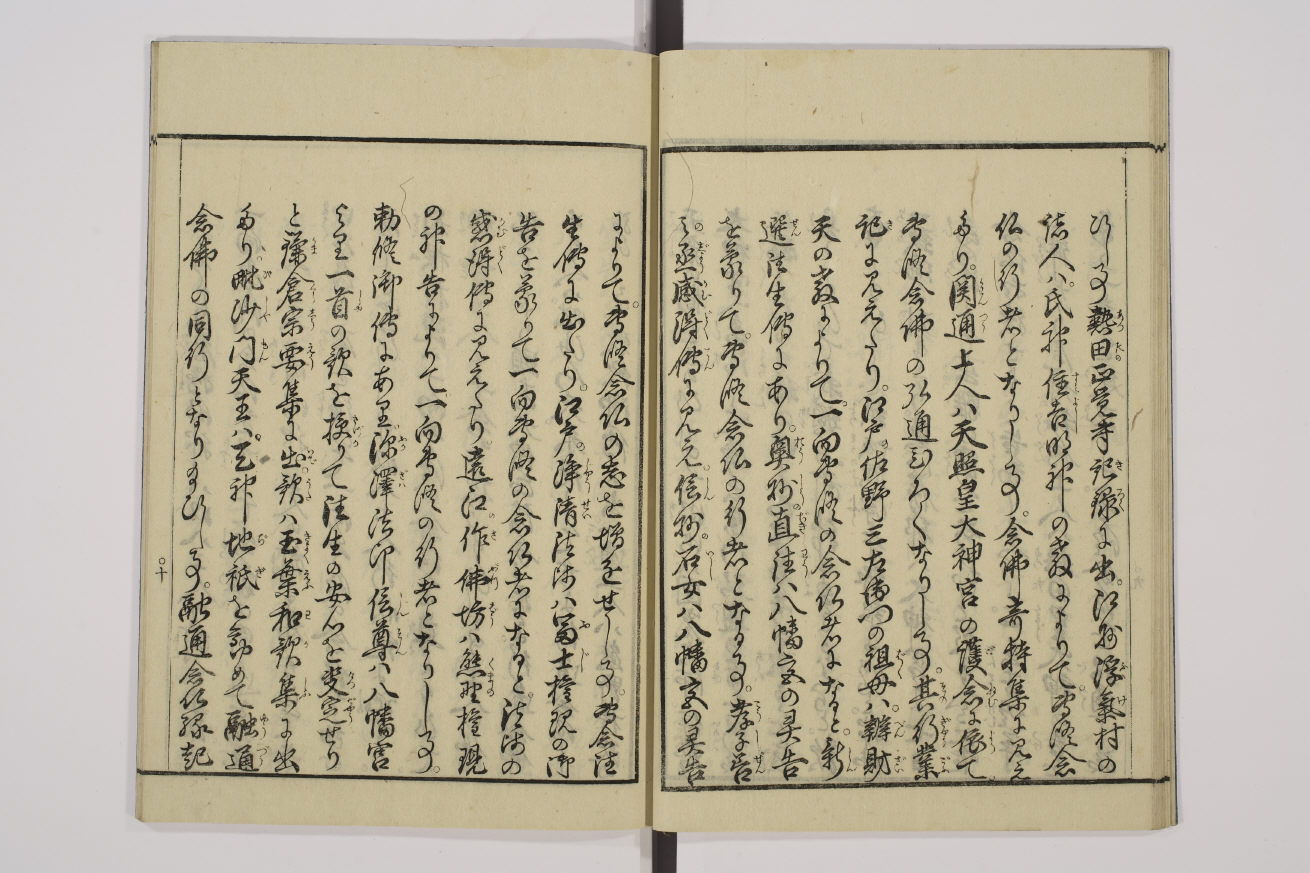 ひし事熱田正覚寺記録に出。江州浮氣村の
徳人ハ。氏神住吉明神の教によりて。専修念
仏の行者となりし事。念佛奇特集に見え
たり。関通上人ハ天照皇大神宮の護念に依て
専修念佛の弘通ひろくなりし事。其行業
記に見えたり。江戸佐野三左衛門の祖母ハ。辨財
天の教によりて。一向専修の念仏者になると。新
選往生傳にあり。奥州直往ハ八幡宮の霊告
を蒙りて。専修念仏の行者となる事。孝子善
之丞感得傳に見え。信州石女ハ八幡宮の霊告
によりて。専修念仏の志を増進せし事。専念往
生傳に出たり。江戸浄清法師ハ冨士権現の御
告を蒙りて一向専修の念仏者になると。法師の
感得傳に見えたり遠江作佛坊ハ熊野権現
の神告によりて一向専修の行者となりし事。
勅修御傳にあり深澤法印信尊ハ八幡宮
より一首の歌を授りて往生の安心を決定せり
と蓮倉宗要集に出歌ハ玉葉和歌集に出
たり毗沙門天王ハ。天神地祇を勧めて融通
念佛の同行となり給ひし事。融通念仏縁起
十